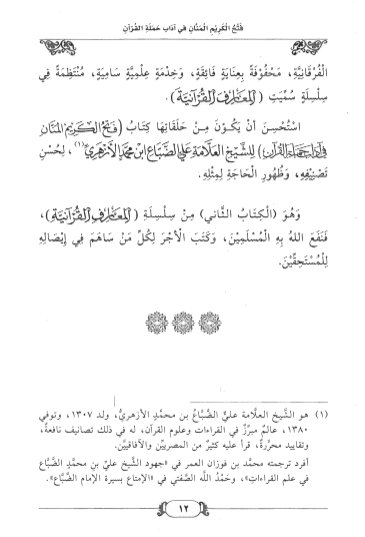 فَتْحُ الْكَرِيمِ الْمَنَّانِ فِي آدَابِ حَمَلَةِ الْقُرْآنِ
الْفُرْقَانِيَّةِ، مَحْفُوفَةً بِعِنَايَةٍ فَائِقَةٍ، وَخِدْمَةٍ عِلْمِيَّةٍ سَامِيَةٍ، مُنْتَظِمَةً فِي
سِلْسِلَةٍ سُمِّيَتِ (الْمَعَارِفَ الْقُرْآنِيَّةَ).
اسْتُحْسِنَ أَنْ يَكُونَ مِنْ حَلَقَاتِهَا كِتَابُ (فَتْحُ الْكَرِيمِ الْمَنَّانِ
فِي آدَابِ حَمَلَةِ الْقُرْآنِ) لِلشَّيْخِ الْعَلَّامَةِ عَلِي الضَّبَّاعِ ابْنِ مُحَمَّدٍ الْأَزْهَرِيِّ (١)، لِحُسْنِ
تَصْنِيفِهِ، وَظُهُورِ الْحَاجَةِ لِمِثْلِهِ.
وَهُوَ (الْكِتَابُ الثَّانِي) مِنْ سِلْسِلَةِ (الْمَعَارِفِ الْقُرْآنِيَّةِ)،
فَنَفَعَ اللهُ بِهِ الْمُسْلِمَيْنَ، وَكَتَبَ الْأَجْرَ لِكُلِّ مَنْ سَاهَمَ فِي إِيْصَالِهِ
لِلْمُسْتَحِقِّيْنَ.
(١) هو الشَّيخ العلَّامة عليٌّ الضَّبَّاعُ بن محمَّدٍ الأزهريُّ، ولد ١٣٠٧، وتوفي
١٣٨٠، عالمٌ مبرِّزٌ في القراءات وعلوم القرآن، له في ذلك تصانيف نافعةٌ،
وتقاييد محرَّرةٌ، قرأ عليه كثيرٌ من المصريِّين والآفاقيِّين.
أفرد ترجمته محمَّد بن فوزان العمر في «جهود الشَّيخ عليِّ بن محمَّدٍ الضَّبَّاع
في علم القراءات»، وحَمْدُ اللَّه الصَّفتي في «الإمتاع بسيرة الإمام الضَّبَّاع».
١٢